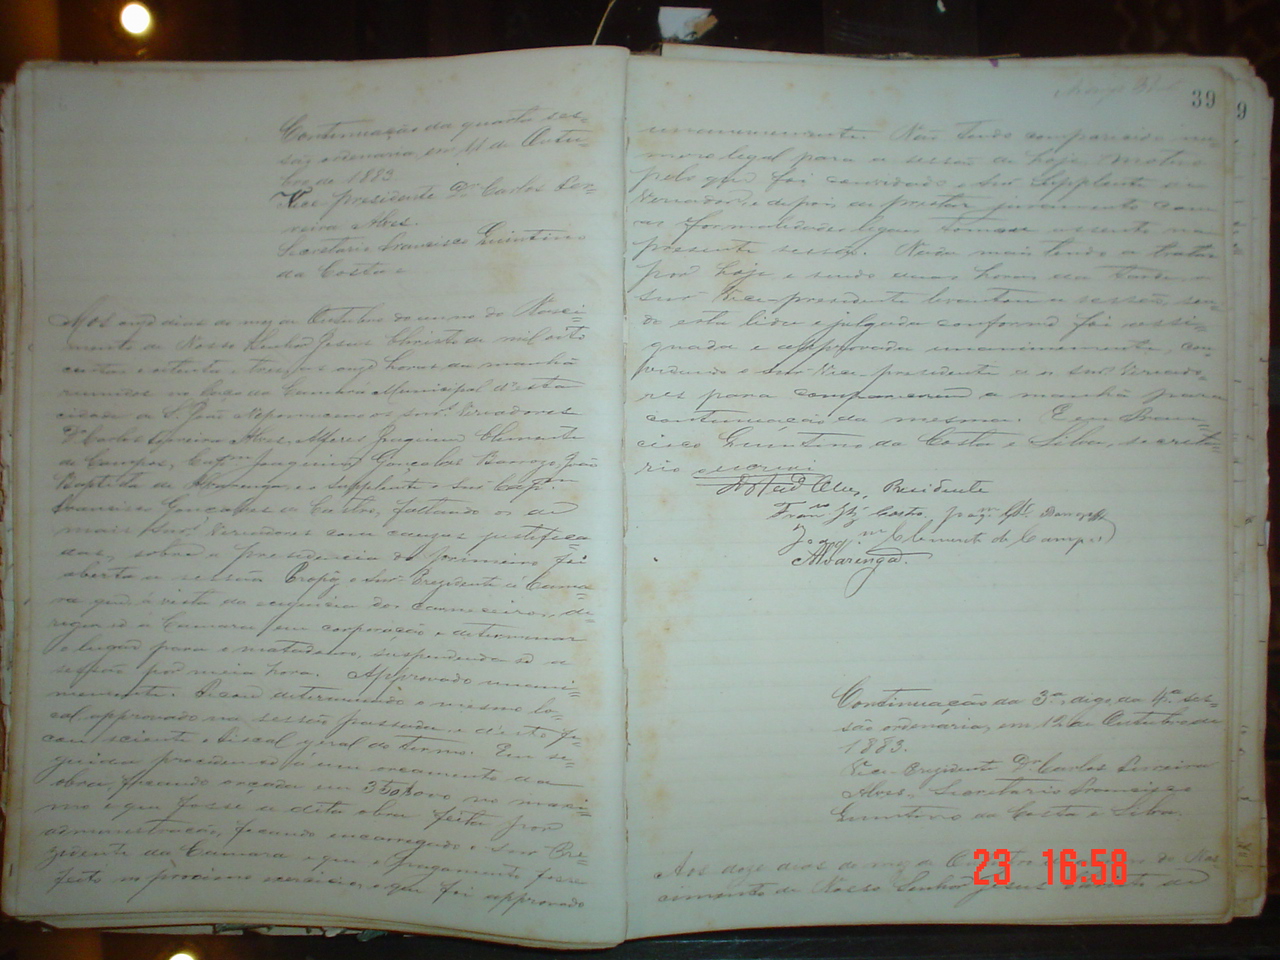 Continuação da quarta ses=
são ordenaria, em 11 de Outu=
bro de 1883.
Vice presidente Dr Carlos Fer=
reira Alves.
Secretario Francisco Quintino
da Costa e
Aos onze dias do mez de Outubro do anno do Nasci=
mento de Nosso Senhor Jesus Christo de mil oito
centos e oitenta e tres, as onze horas da manhã
reunidos no Paço da Camara Municipal d'esta
cidade de S. João Nepomuceno os snrs. Vereadores
Dr Carlos Ferreira Alves, Alferes Joaquim Clemente
de Campos, Capm Joaquim Gonçalves Barroso, João
Baptista de Alvarenga, e o supplente o Snr Capm
Francisco Gonçalves de Castro, faltando os de
mais Snrs Vereadores com causas justifica
das, sobre a presidencia do primeiro foi
aberta a sessão. Propoz o Snr. Prezidente á Cama=
ra que, á vista da dos carniceiros, di=
a Camara em corporação e determinar
o lugar para o matadouro, suspendendo se a
sessão por meia hora. Approvado unani=
memente. Ficou determinado o mesmo lo=
cal approvado na sessão passada, e disto fi=
cou sciente o Fiscal geral do termo. Em se=
guida procedeu-se á um orçamento da
obra, ficando orçada em no maxi=
mo e que fosse a dita obra feita por
administração, ficando encarregado o snr Pre=
zidente da Camara e que o pagamento fosse
feito no proximo exercicio, o que foi approvado
39
unanimemente. Não tendo comparecido nu=
mero legal para a sessão de hoje, motivo
pelo que foi convidado o Snr Supplente a
Vereador, e depois de prestar juramento com
as formalidades legaes, tomou assento na
presente sessão. Nada mais tendo a tratar
por hoje e sendo duas horas da tarde, o
snr Vice-presidente levantou a sessão, sen=
do esta lida e julgada conforme foi assi=
gnada e approvada unanimemente, con=
vidando o snr Vice-presidente a os snrs Vereado=
res para comparecerem a manhã para
continuação da mesma. Eu Fran=
cisco Quintino da Costa e Silva, secreta=
rio escrevi
Alves, Presidente
Castro,
Joaqm Clemente de Campos
Alvarenga.
Continuação da 3.a, digo, da 4.a ses=
são ordenaria, em 12 de Outubro de
1883.
Vice-Prezidente Dr Carlos Ferreira
Alves. Secretario Francisco
Quintino da Costa e Silva.
Aos doze dias do mez de Outubro do anno do Nas
cimento de Nosso Senhor Jesus Christo de
23 16:58